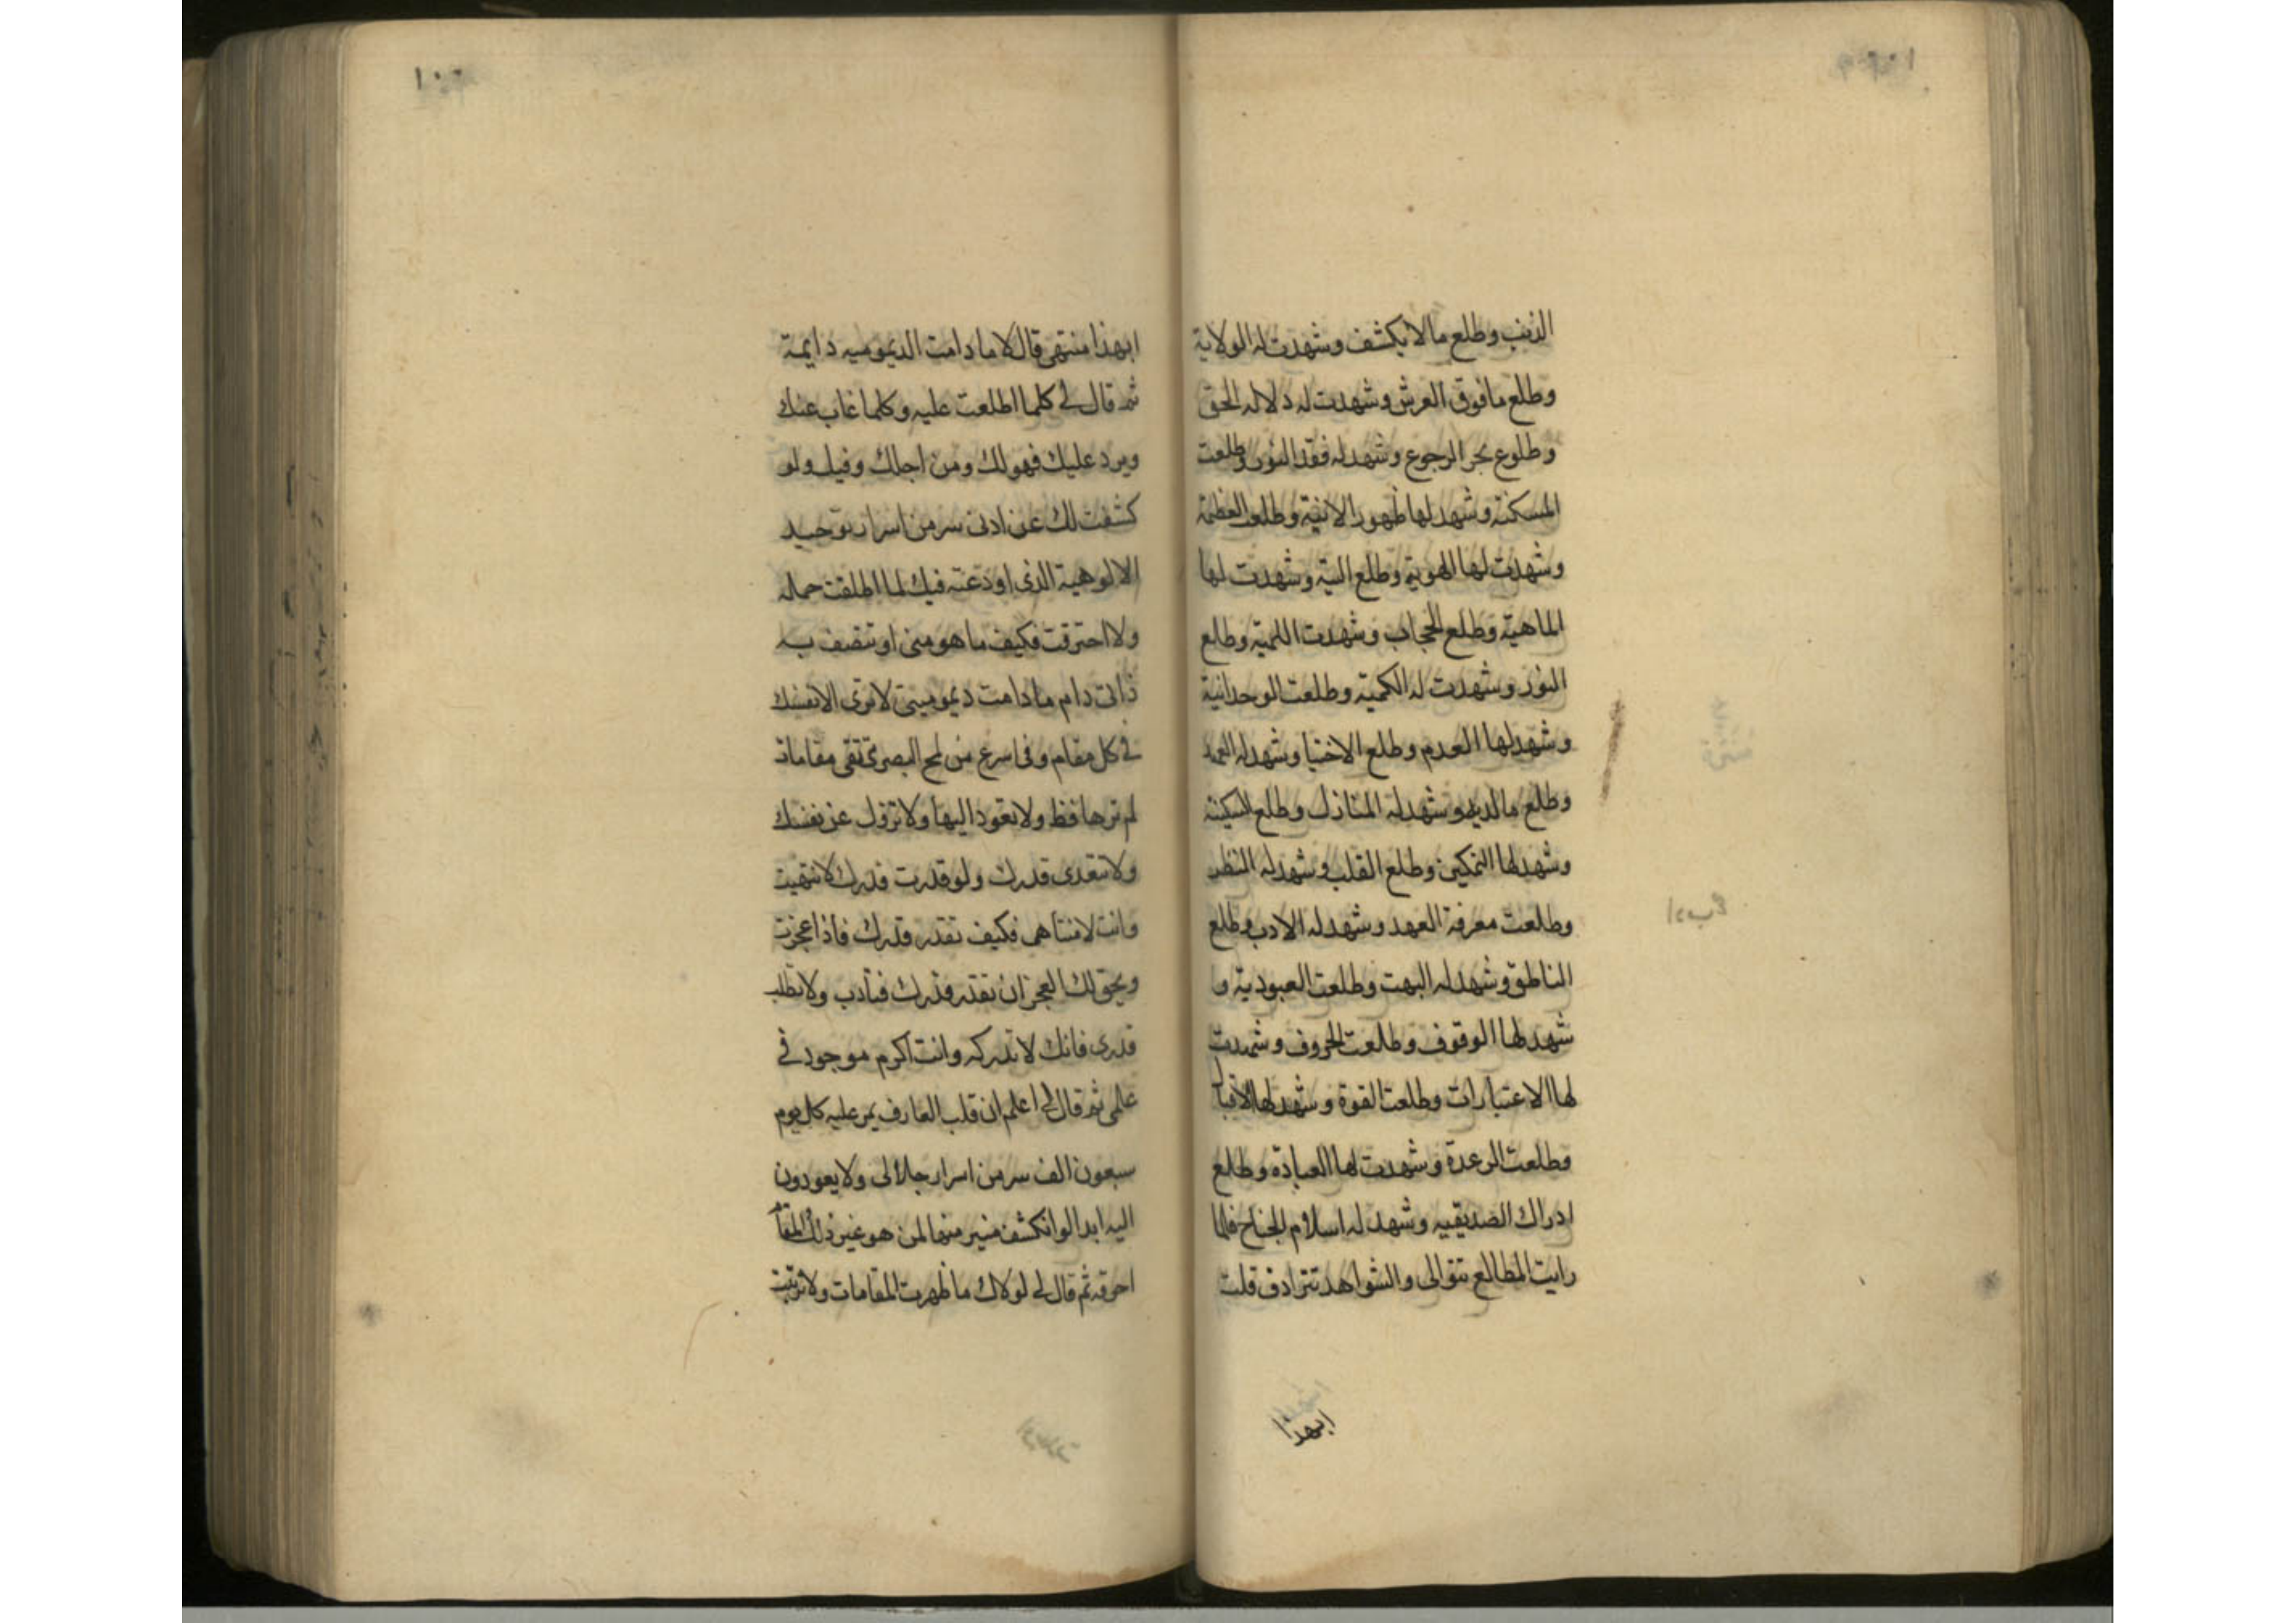 الذنب وطلع ما لا يكشف وشهدت له الولاية
وطلع ما فوق العرش وشهدت له دلاله الحق
وطلوع بحر الرجوع وشهد له فقد النور وطلعت
المسكنة وشهد لها ظهور الانية وطلعت العظمة
وشهدت لها الهوية وطلع الية وشهدت لها
الماهية وطلع الحجاب وشهدت اللمية وطلع
النور وشهدت له الكمية وطلعت الوحدانية
وشهد لها العدم وطلع الاختيا وشهد له العهد
وطلع مالديه وشهد له المنازل وطلع السكينة
وشهد لها التمكين وطلع القلب وشهد له النظر
وطلعت معرفة العهد وشهد له الادب وطلع
الناطق وشهد له البهت وطلعت العبودية و
شهد لها الوقوف وطلعت الحروف وشهدت
لها الاعتبارات وطلعت القوة وشهد لها الاقبال
وطلعت الرعدة وشهدت لها العبادة وطلع
ادراك الصديقيه وشهد له اسلام الجناح فلما
رايت المطالع تتوالى والشواهد تترادف قلت
ابهذا
ابهذا منتهى قال لا ما دامت الديموميه دايمة
ثم قال لي كلما اطلعت عليه وكلما غاب عنك
ويرد عليك فهو لك ومن اجلك وفيك ولو
كشفت لك عن ادنى سر من اسرار توحيد
الالوهية الذى اودعته فيك لما اطلقت حماله
ولا احترقت فكيف ما هو منى او تتصف به
ذاتى دام ما دامت ديموميتى لا ترى الا نفسك
فى كل مقام وفى اسرع من لمح البصر ترتقى مقامات
لم ترها قط ولا تعود اليها ولا تزول عن نفسك
ولا تتعدى قدرك ولو قدرت قدرك لانتهيت
وانت لا متناهى فكيف تقدر قدرك فاذا عجزت
ويحق لك العجز ان تقدر قدرك فتادب ولا تطلب
قدرى فانك لا تدركه وانت اكرم موجود فى
علمى ثم قال لى اعلم ان قلب العارف يمر عليه كل يوم
سبعون الف سر من اسرار جلالى ولا يعودون
اليه ابدا لو انكشف منير منها لمن هو غير ذلك المقام
احرقه ثم قال لى لولاك ما ظهرت المقامات ولا ترتبت